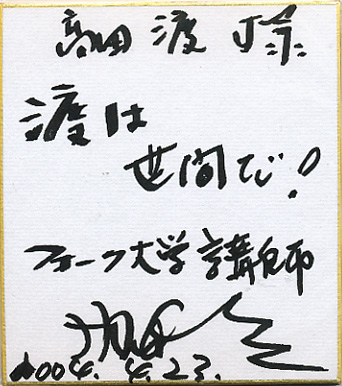 高田渡 様
渡は
世間で!
フォーク大学講師
2004.4.23.